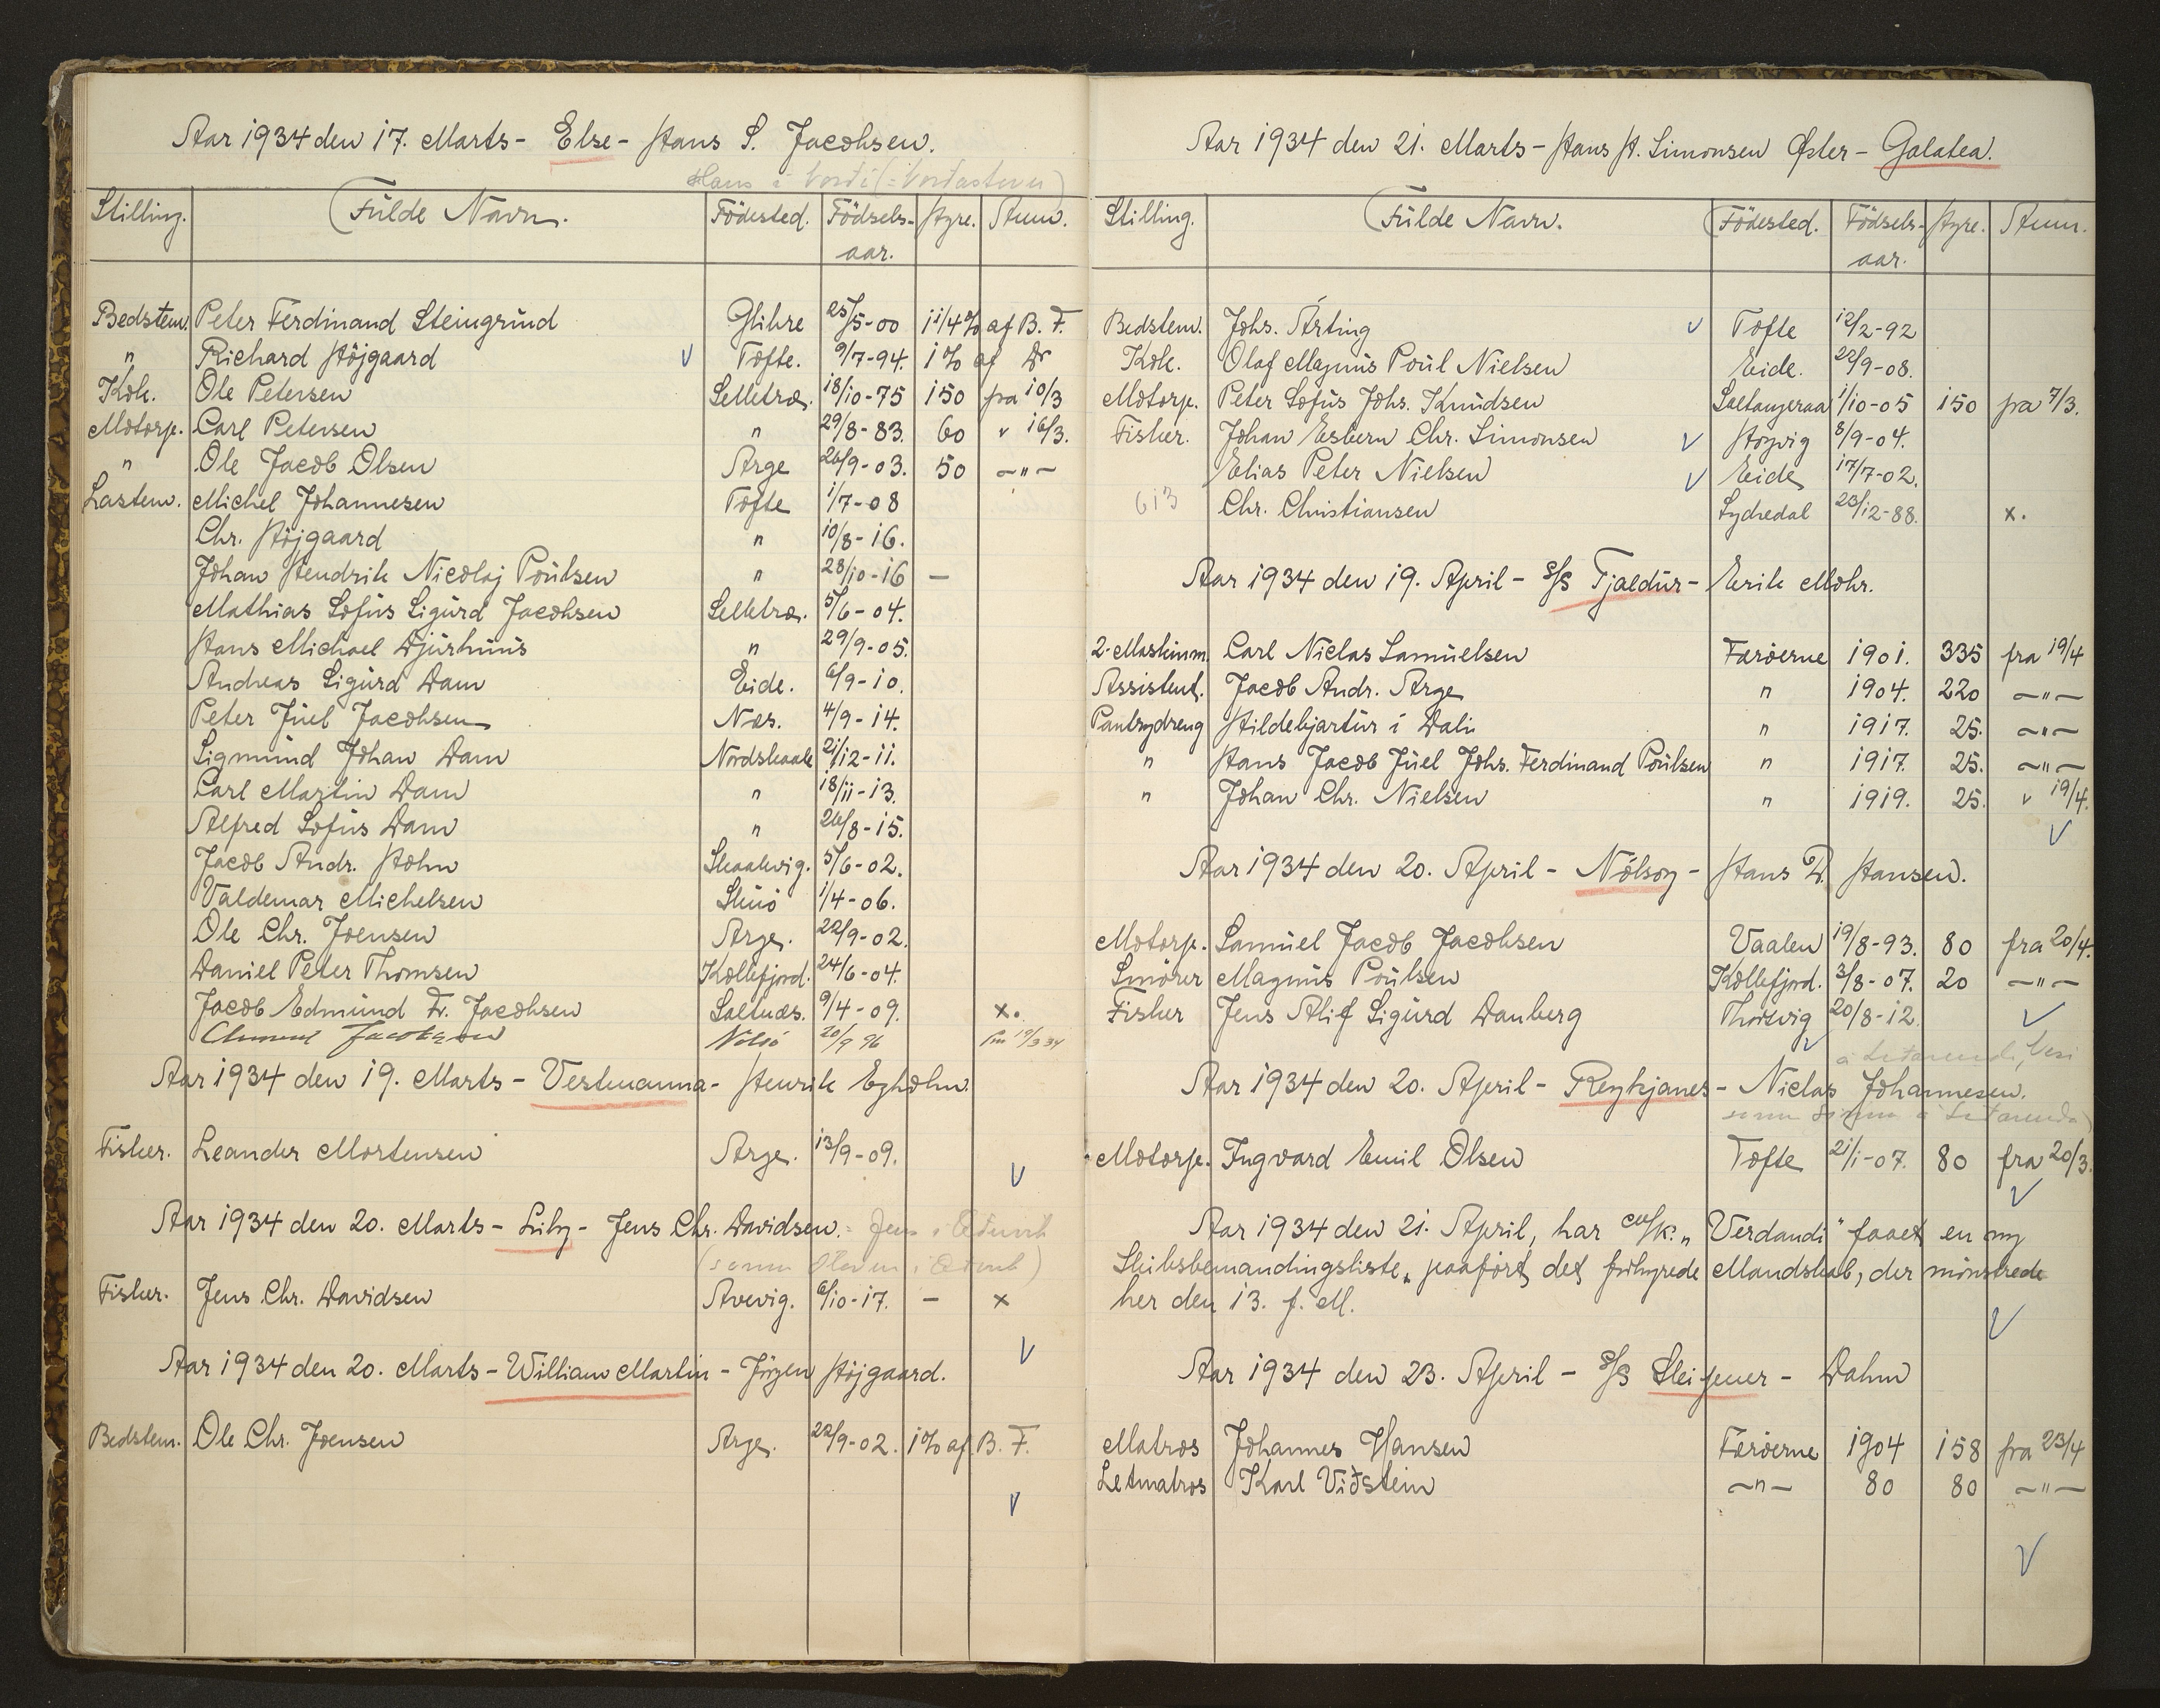 Aar 1934 den 17. Marts - Else - Hans S. Jacobsen.
Stilling. Fulde Navn. Födested. Födsels- Hyre. Anm.
aar.
Bedstem. Peter Ferdinand Steingrund Glibre 25/5-00 1 1/4 % af B. F.
" Richard Höjgaard Tofte. 9/7-94. 1 % af Do
Kok. Ole Petersen Selletræ. 18/10-75 150 fra 10/3
Motorp. Carl Petersen " 29/8-83. 60 " 16/3.
" Ole Jacob Olsen Arge 26/9-03. 50 -"-
Lastem. Michel Johannesen Tofte 1/7-08
Chr. Höjgaard " 10/8-16.
Johan Hendrik Nicolaj Poulsen " 28/10-16 -
Mathias Sofus Sigurd Jacobsen Selletræ. 5/6-04.
Hans Michael Djurhuus " 29/9-05.
Andreas Sigurd Dam Eide. 6/9-10.
Peter Juel Jacobsen Næs. 4/9-14.
Sigmund Johan Dam Nordskaale 21/12-11.
Carl Martin Dam " 18/11-13.
Alfred Sofus Dam " 26/8-15.
Jacob Andr. Holm Skaalevig. 5/6-02.
Valdemar Michelsen Skuö 1/4-06.
Ole Chr. Joensen Arge. 22/9-02.
Daniel Peter Thomsen Kollefjord. 24/6-04.
Jacob Edmund Fr. Jacobsen Saltnæs. 9/4-09. x.
Jacobsen Nolsö 20/9 96 19/3 34
Aar 1934 den 19. Marts - Vestmanna - Henrik Egholm.
Fisker. Leander Mortensen Arge. 13/9-09.
Aar 1934 den 20. Marts - Liby - Jens Chr. Davidsen.
Fisker. Jens Chr. Davidsen Avevig. 6/10-17. - x
Aar 1934 den 20. Marts - William Martin - Jörgen Höjgaard.
Bedstem. Ole Chr. Joensen Arge. 22/9-02. 1 % af B. F.
Aar 1934 den 21. Marts - Hans H. Simonsen Øster - Galatea.
Stilling. Fulde Navn. Födested. Födsels- Hyre. Anm.
aar.
Bedstem. Johs. Árting Tofte 12/2-92
Kok. Olaf Magnus Poul Nielsen Eide. 22/9-08.
Motorp. Peter Sofus Johs. Knudsen Saltangeraa 1/10-05 150 fra 7/3.
Fisker. Johan Esbern Chr. Simonsen Hoyvig 8/9-04.
Elias Peter Nielsen Eide 17/7-02.
613 Chr. Christiansen Sydredal 23/12-88. x.
Aar 1934 den 19. April - S/S Tjaldur - Erik Mohr.
2-Maskinm. Carl Niclas Samuelsen Færöerne 1901. 335 fra 19/4
Assistent. Jacob Andr. Arge " 1904. 220 -"-
Pantrydreng Hildebjartur i Dali " 1917. 25. -"-
" Hans Jacob Juel Johs. Ferdinand Poulsen " 1917. 25. -"-
" Johan Chr. Nielsen " 1919. 25. " 19/4.
Aar 1934 den 20. April - Nólsoy - Hans D. Hansen.
Motorp. Samuel Jacob Jacobsen Vaalen 19/8-93. 80 fra 20/4.
Smörer Magnus Poulsen Kollefjord. 3/8-07. 20 -"-
Fisker Jens Alif Sigurd Danberg Thorsvig 20/8-12.
Aar 1934 den 20. April - Reykjanes - Niclas Johannesen.
Motorp. Ingvard Emil Olsen Tofte 21/1-07. 80 fra 20/3.
Aar 1934 den 21. April, har M/K. „Verdandi" faaet en ny
Skibsbemandingsliste, paaført det forhyrede Mandskab, der mönstrede
her den 13. f. M.
Aar 1934 den 23. April - S/S Sleipner - Dahm
Matros Johannes Hansen Færöerne 1904 158 fra 23/4
Letmatros Karl Viðstein -"- 80 80 -"-